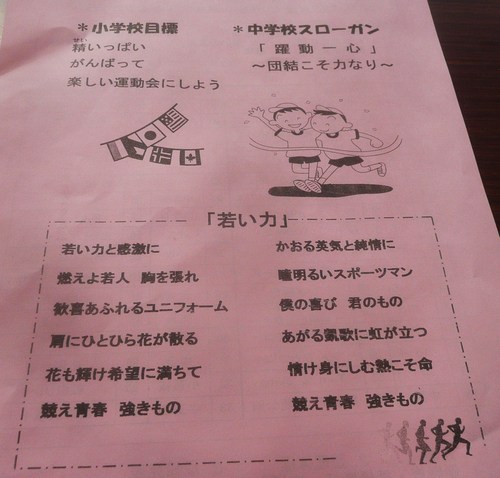 ＊小学校目標
精いっぱい
がんばって
楽しい運動会にしよう
＊中学校スローガン
「躍動一心」
～団結こそ力なり～
「若い力」
若い力と感激に
燃えよ若人　胸を張れ
歓喜あふれるユニフォーム
肩にひとひら花が散る
花も輝け希望に満ちて
競え青春　強きもの
かおる英気と純情に
瞳明るいスポーツマン
僕の喜び　君のもの
あがる凱歌に虹が立つ
情け身にしむ熱こそ命
競え青春　強きもの